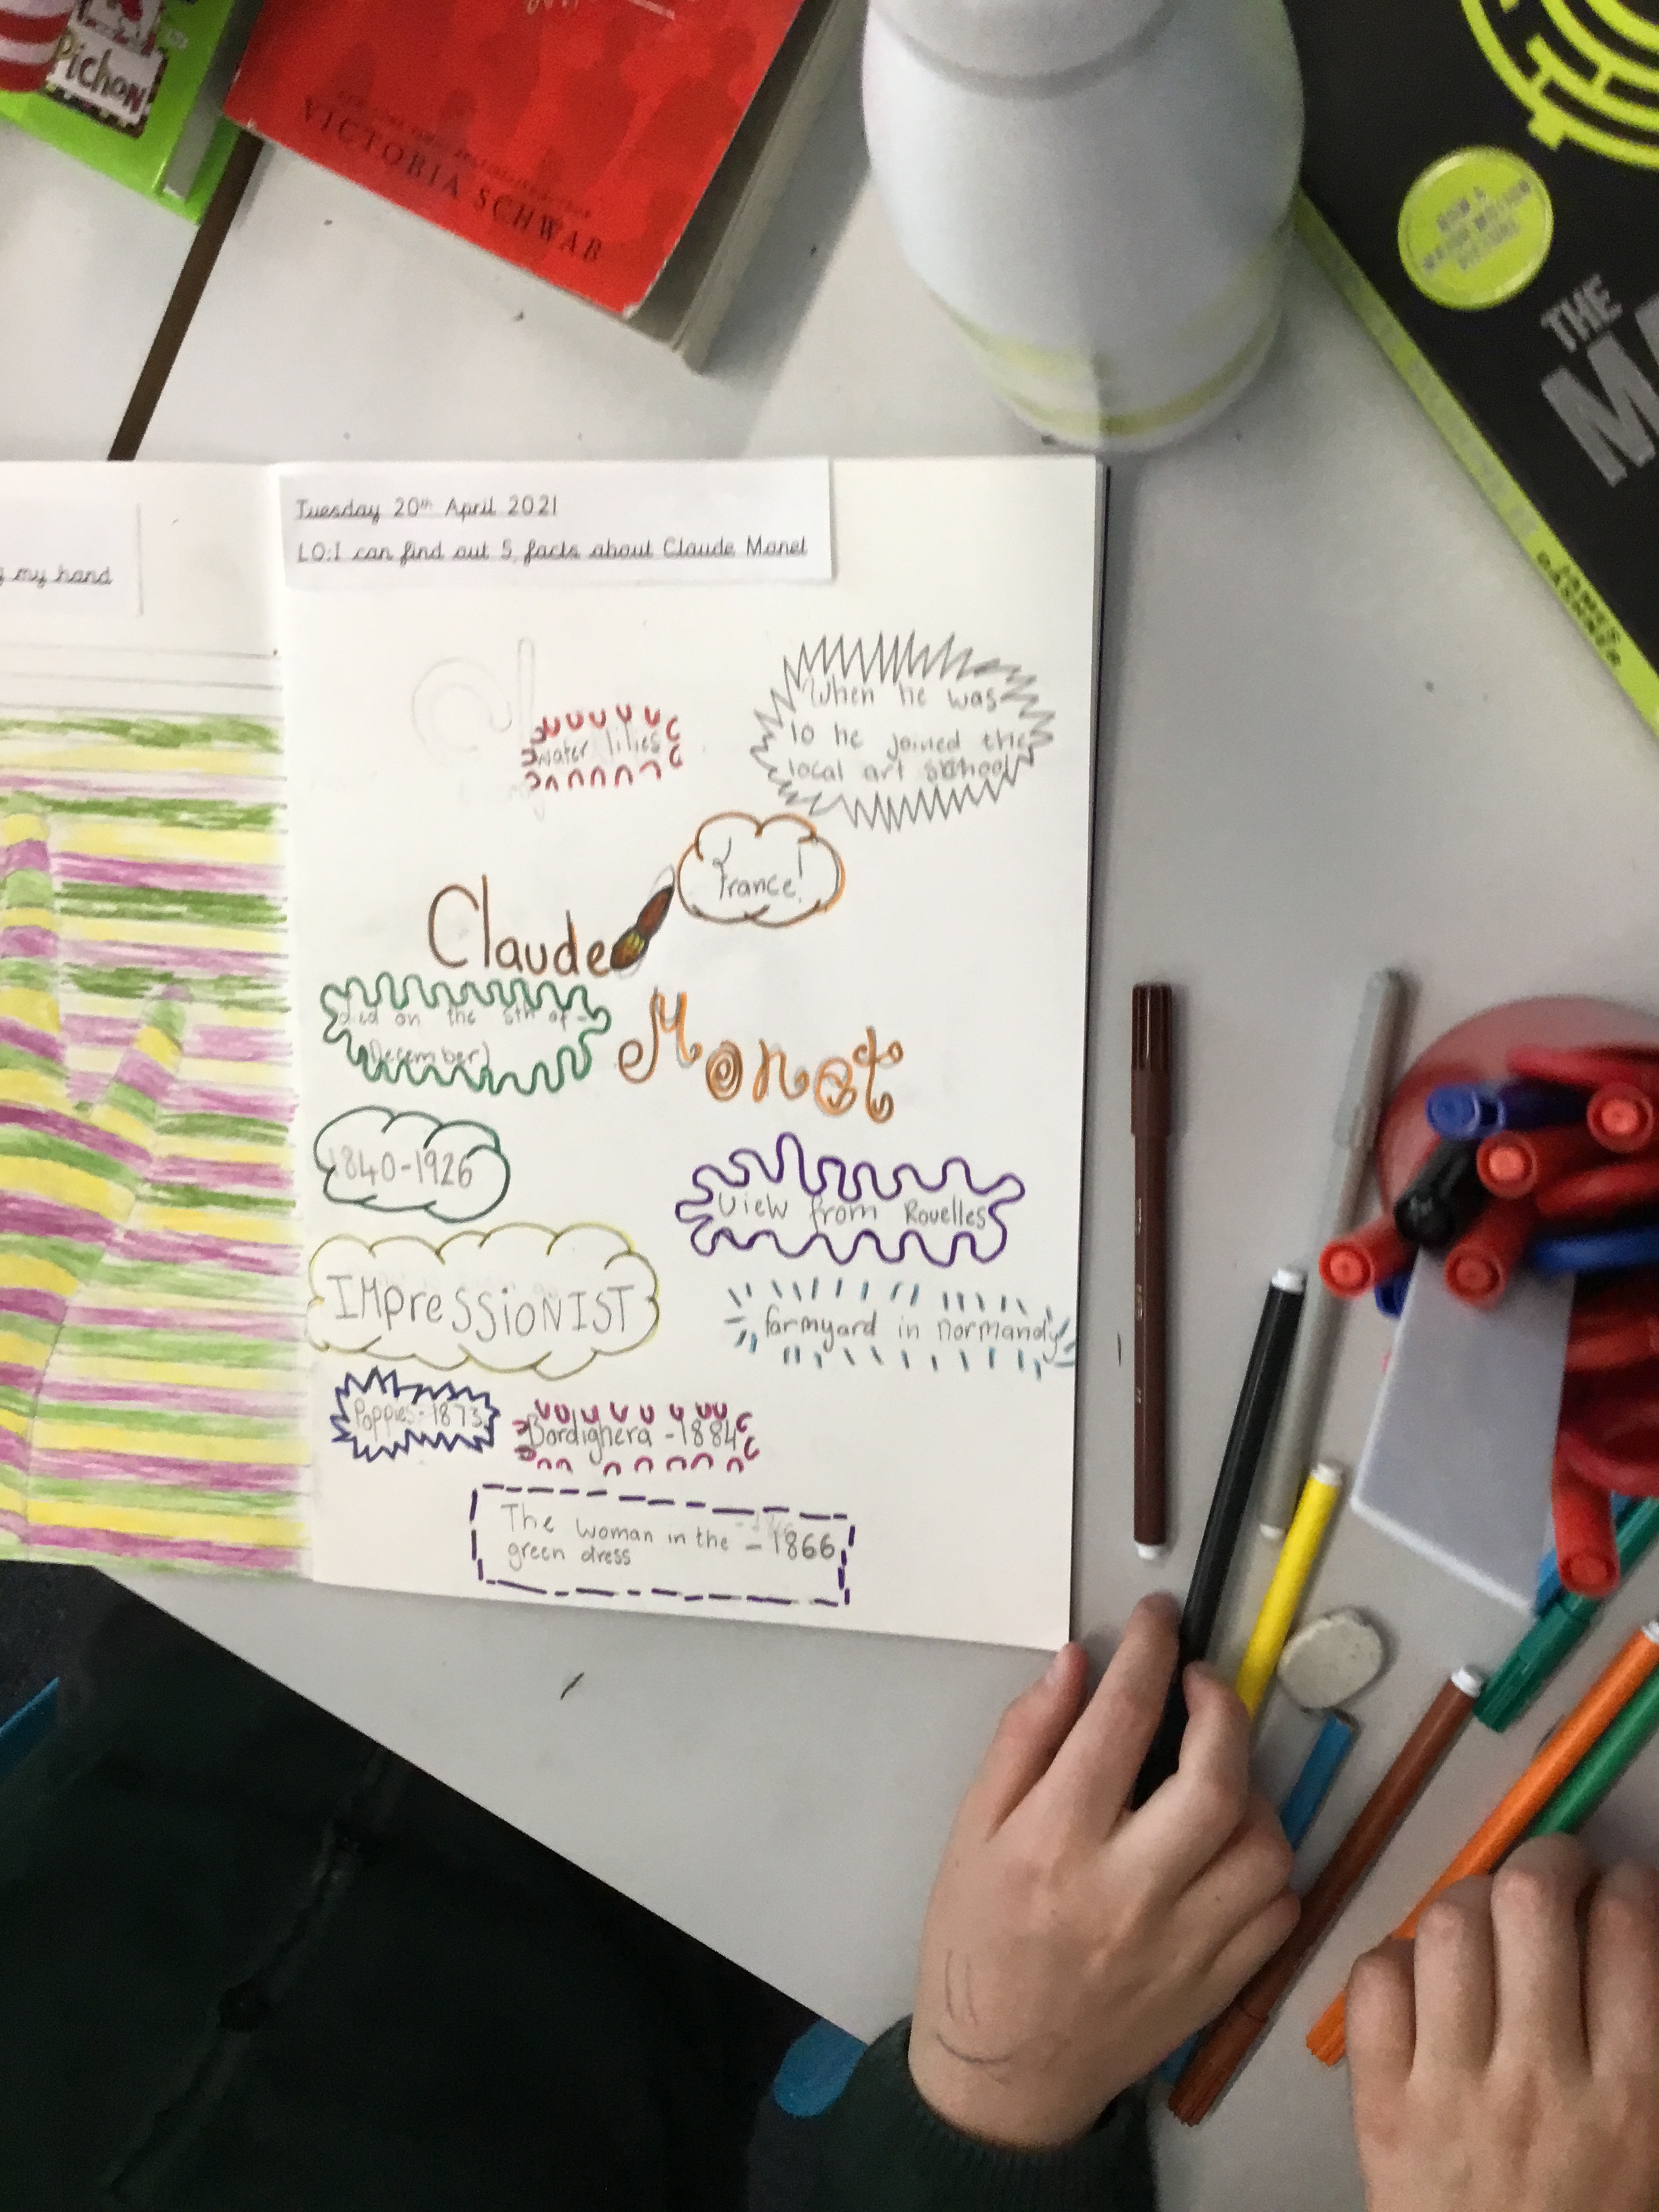 Pichon
VICTORIA SCHWAB
THE
Tuesday 20th April 2021
LO:I can find out 5 facts about Claude Monet
my hand
water lilies
When he was
10 he joined the
local art school
France!
Claude
Monet
died on the 5th of
December
1840-1926
View from Rouelles
IMpresSioNIST
farmyard in normandy
Poppies-1873
Bordighera -1884
The woman in the - 1866
green dress